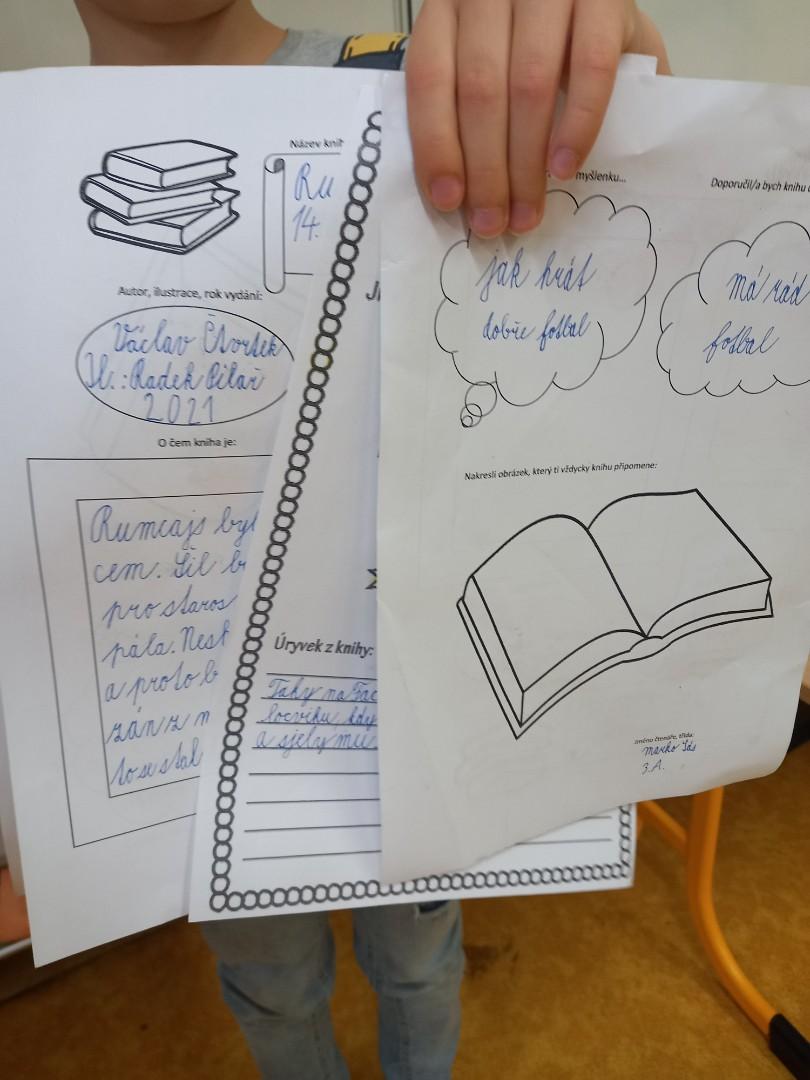 Název knih
Ru
14.
Autor, ilustrace, rok vydání:
Václav Čtvrtek
Il.: Radek Pilař
2021
O čem kniha je:
Rumcajs byl
cem. Šil b
pro staros
pála. Nest
a proto b
zán z m
to se stal
Úryvek z knihy:
Tahy na Fac
locviku, kdy
a sjely mu
myšlenku...
jak hrát
dobře fotbal
Doporučil/a bych knihu
má rád
fotbal
Nakresli obrázek, který ti vždycky knihu připomene:
Jméno čtenáře, třída:
Marko
3.A.